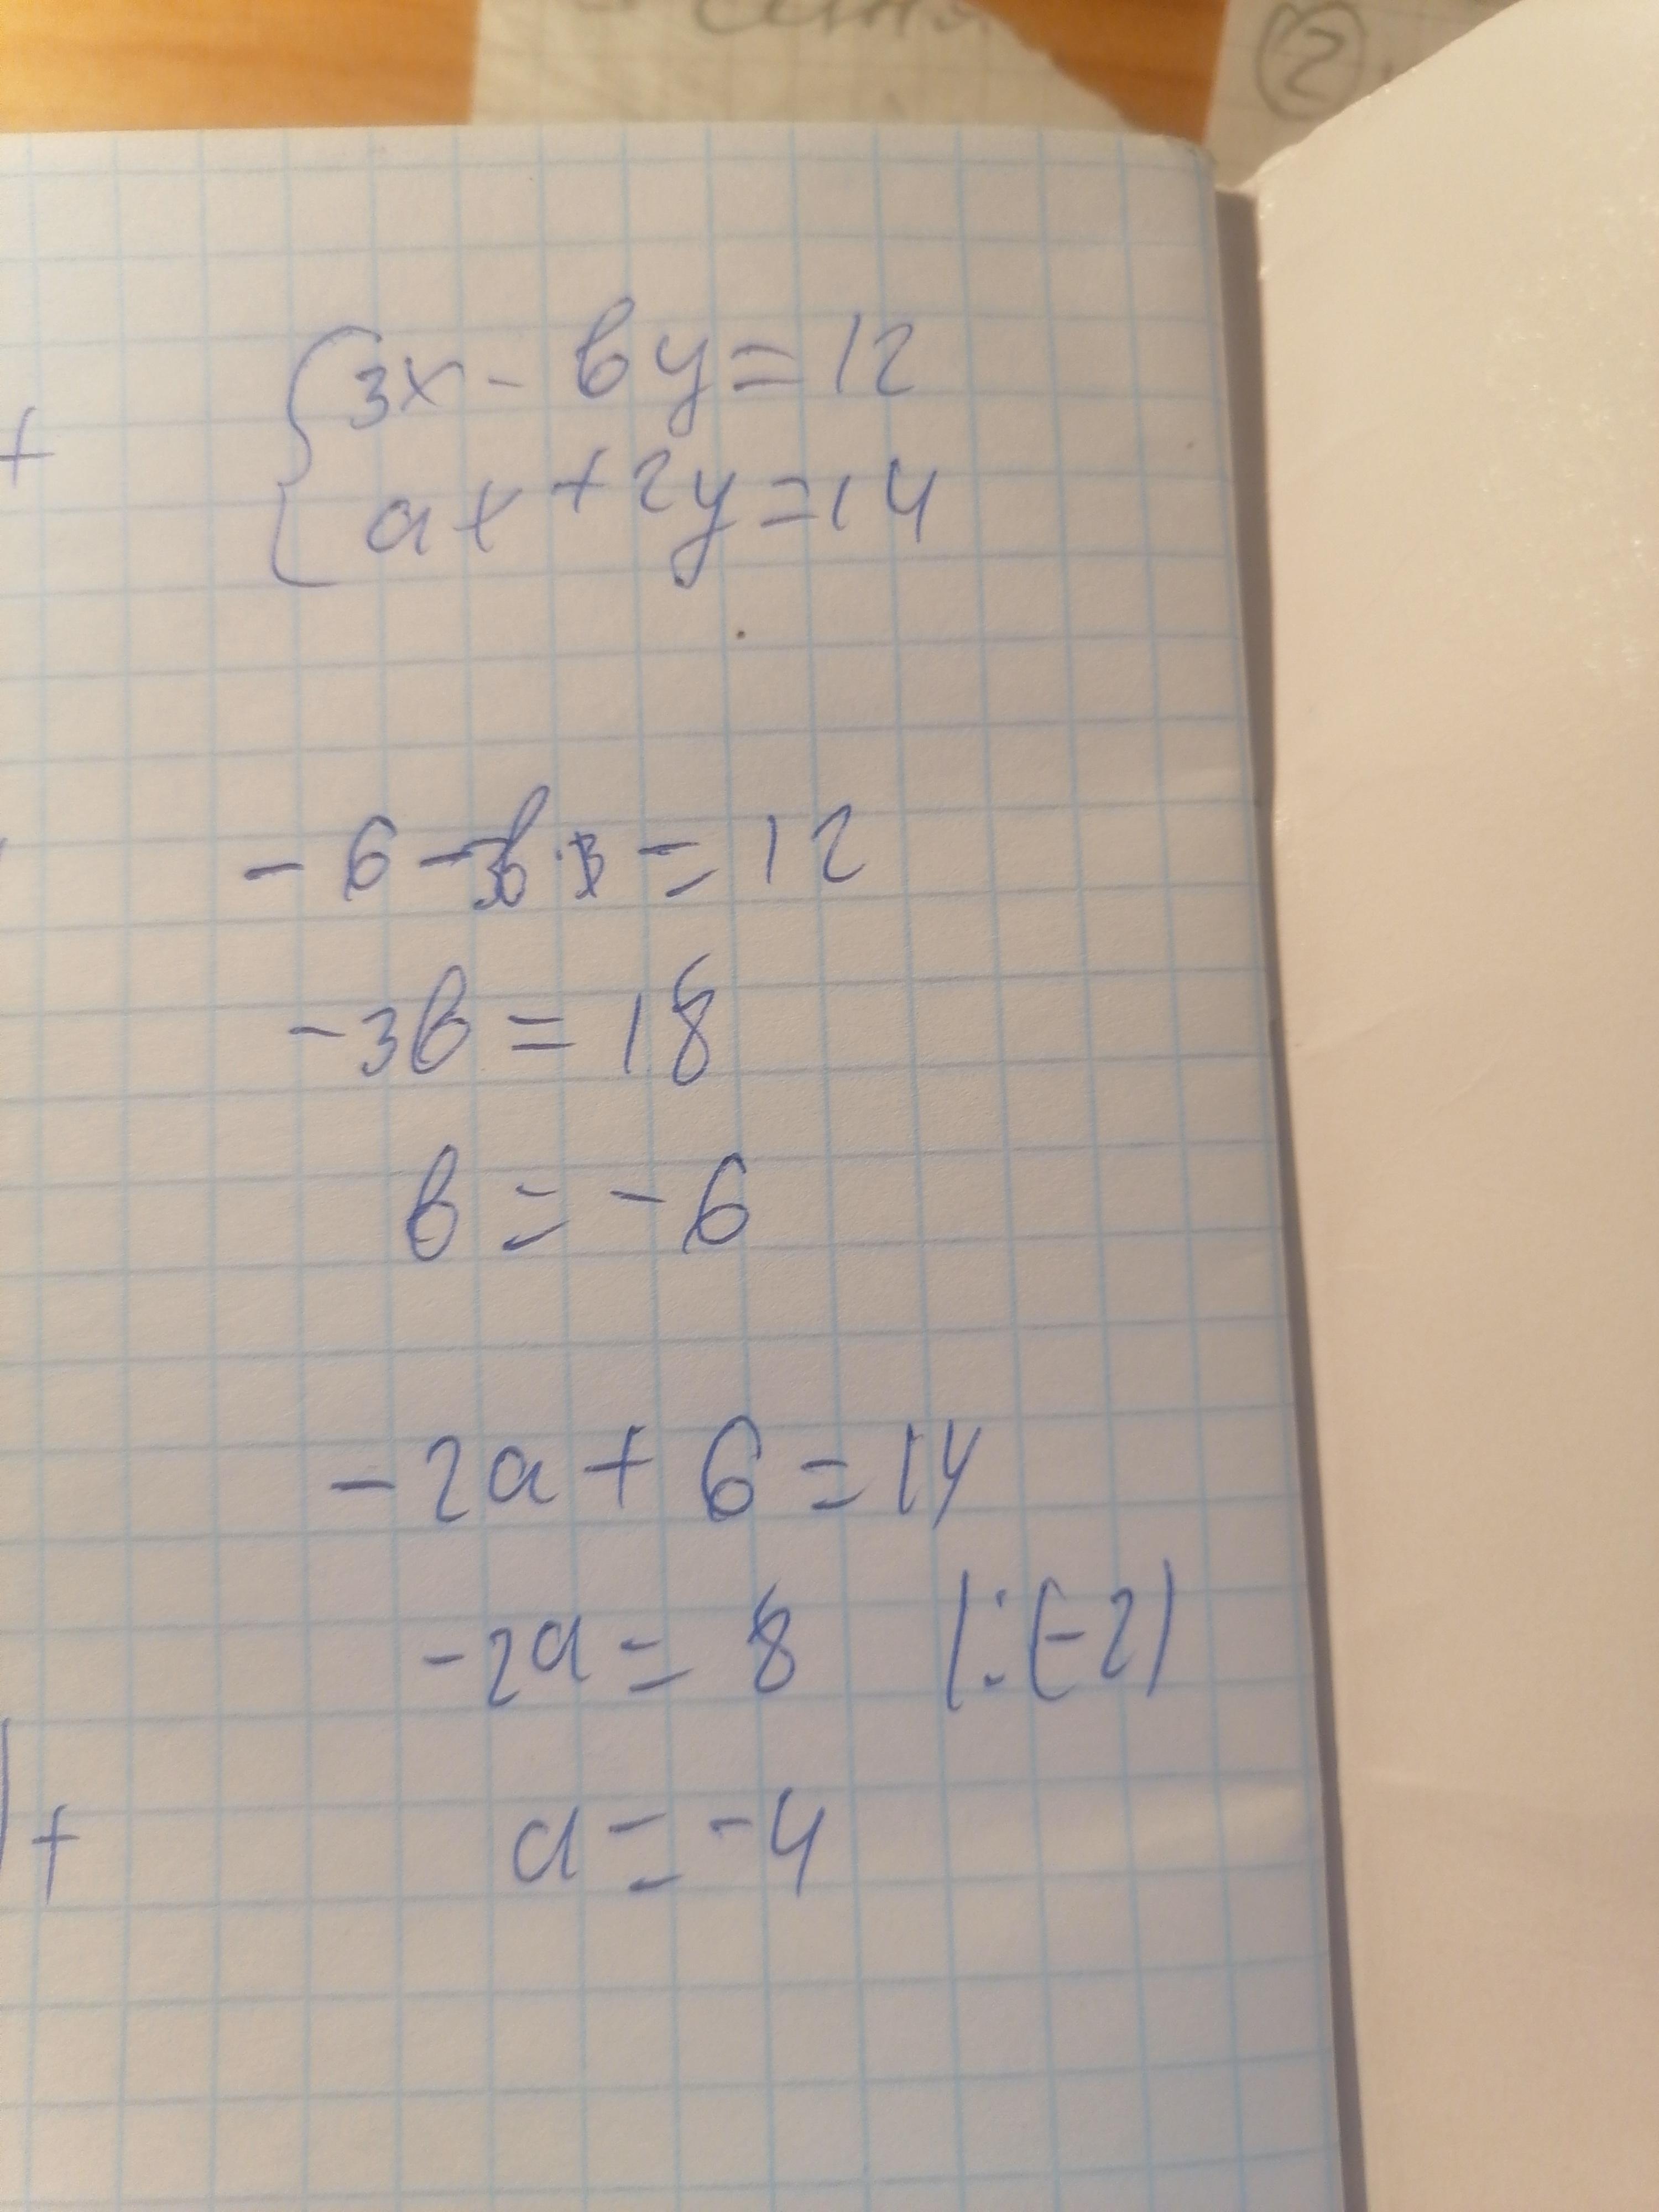 ②
+
{3x - by = 12
ax + 2y = 14
- 6 - 3b = 12
- 3b = 18
b = - 6
- 2a + 6 = 14
- 2a = 8 |:(-2)
a = - 4
+